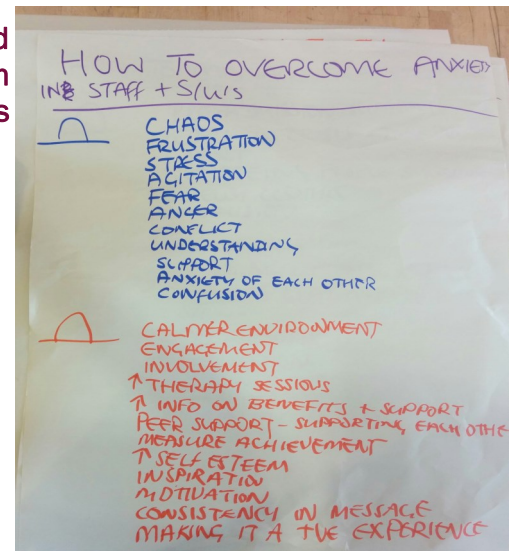 d
n
s
HOW TO OVERCOME ANXIETY
IN STAFF + S/U'S
CHAOS
FRUSTRATION
STRESS
AGITATION
FEAR
ANGER
CONFLICT
UNDERSTANDING
SUPPORT
ANXIETY OF EACH OTHER
CONFUSION
CALMER ENVIRONMENT
ENGAGEMENT
INVOLVEMENT
↑ THERAPY SESSIONS
↑ INFO ON BENEFITS + SUPPORT
PEER SUPPORT - SUPPORTING EACH OTHE
MEASURE ACHIEVEMENT
↑ SELF ESTEEM
INSPIRATION
MOTIVATION
CONSISTENCY IN MESSAGE
MAKING IT A +VE EXPERIENCE